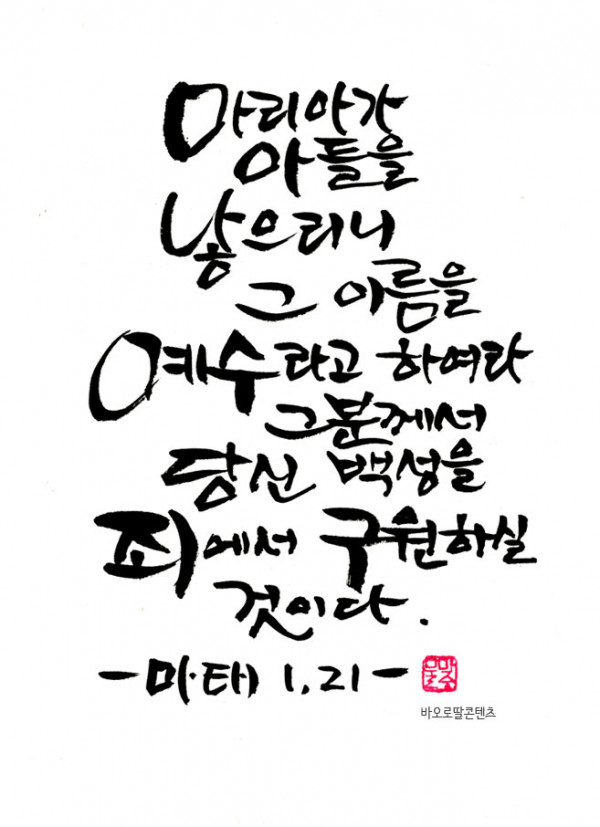 마리아가
아들을
낳으리니
그 이름을
예수라고 하여라
그분께서
당신 백성을
죄에서 구원하실
것이다.
-마태 1,21-
바오로딸콘텐츠